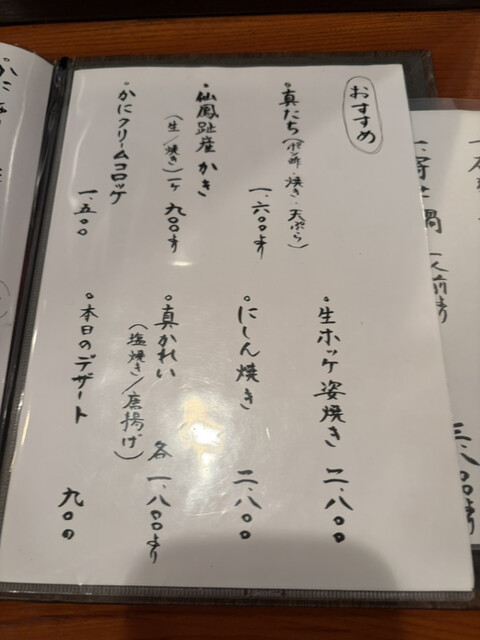 おすすめ
。真だち(ポン酢・焼き・天ぷら)
一、六〇〇より
。仙鳳趾産かき
(生/焼き)一ケ 九〇〇より
。かにクリームコロッケ
一、五〇〇
。生ホッケ姿焼き 二、八〇〇
。にしん焼き 二、八〇〇
。真かれい
(塩焼き/唐揚げ)各 一、八〇〇より
。本日のデザート 九〇〇
寄せ鍋 一人前より
三、八〇〇より